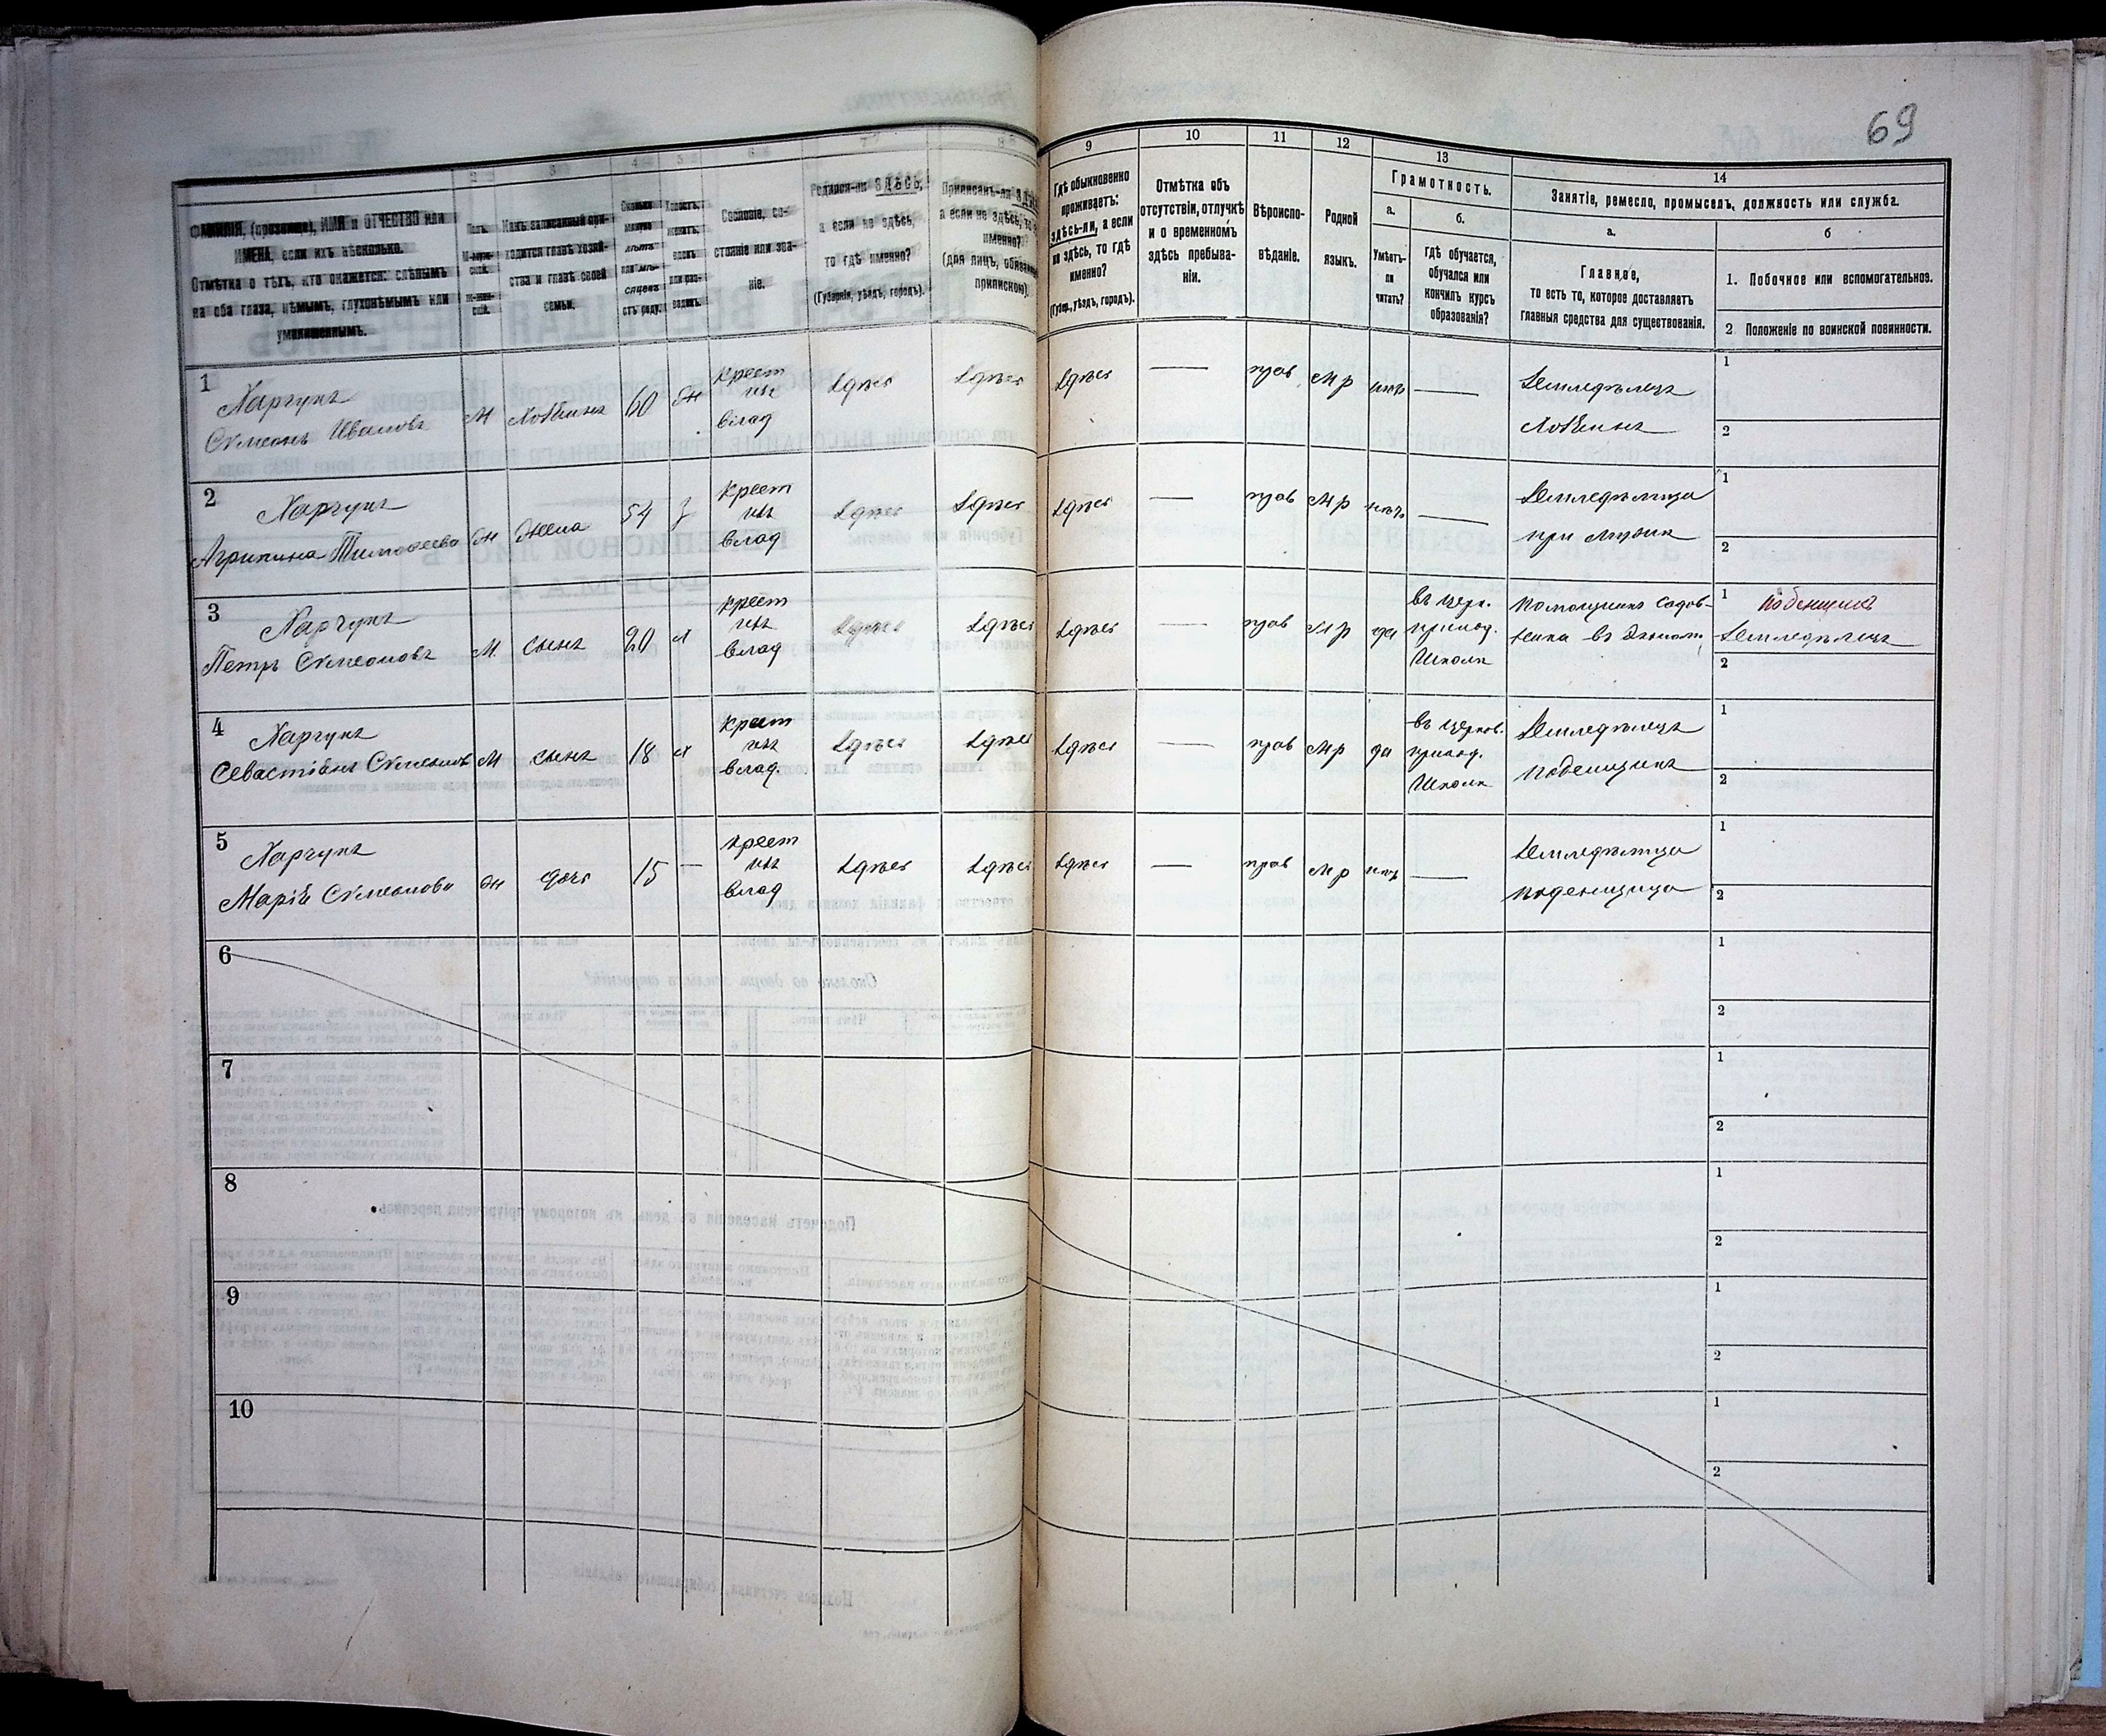 69
1 2 3 4 5 6 7 8 9 10 11 12 13 14
ФАМИЛІЯ, (прозвище), ИМЯ и ОТЧЕСТВО или
ИМЕНА, если ихъ нѣсколько.
Отмѣтка о тѣхъ, кто окажется: слѣпымъ
на оба глаза, нѣмымъ, глухонѣмымъ или
умалишеннымъ.
Полъ.
М-муж-
ской.
ж-жен-
скій.
Какъ записанный при-
ходится главѣ хозяй-
ства и главѣ своей
семьи.
Сколько
минуло
лѣтъ
или мѣ-
сяцевъ
отъ роду.
Холостъ,
женатъ,
вдовъ
или раз-
веденъ.
Сословіе, со-
стояніе или зва-
ніе.
Родился-ли ЗДѢСЬ,
а если не здѣсь,
то гдѣ именно?
(Губернія, уѣздъ, городъ).
Приписанъ-ли
а если не здѣсь,
именно?
(для лицъ,
припискою).
Гдѣ обыкновенно
проживаетъ:
здѣсь-ли, а если
не здѣсь, то гдѣ
именно?
(Губер., уѣздъ, городъ).
Отмѣтка объ
отсутствіи, отлучкѣ
и о временномъ
здѣсь пребыва-
ніи.
Вѣроиспо-
вѣданіе.
Родной
языкъ.
Грамотность.
а.
Умѣетъ-
ли
читать?
б.
Гдѣ обучается,
обучался или
кончилъ курсъ
образованія?
Занятіе, ремесло, промыселъ, должность или служба.
а.
Главное,
то есть то, которое доставляетъ
главныя средства для существованія.
б
1. Побочное или вспомогательное.
2. Положеніе по воинской повинности.
1
Харчукъ
Сѵмеонъ Ивановъ
М
60
жн
крест
изъ
влад
здѣсь
здѣсь
здѣсь
—
прав
мр
нѣтъ
—
Земледѣлецъ
1
2
2
Харчукъ
Агрипина Тимофеева
ж
жена
54
з
крест
изъ
влад
здѣсь
здѣсь
здѣсь
—
прав
мр
нѣтъ
—
Земледѣлица
при мужѣ
1
2
3
Харчукъ
Петръ Сѵмеоновъ
М
сынъ
20
х
крест
изъ
влад
здѣсь
здѣсь
здѣсь
прав
мр
да
въ церк.
приход.
Школѣ
Помощникъ садов-
ника въ
1
поденщикъ
Земледѣлецъ
2
4
Харчукъ
Севастіанъ Сѵмеоновъ
М
сынъ
18
х
крест
изъ
влад.
здѣсь
здѣсь
здѣсь
—
прав
мр
да
въ церков.
приход.
Школѣ
Земледѣлецъ
поденщикъ
1
2
5
Харчукъ
Марія Сѵмеонова
ж
дочь
15
—
крест
изъ
влад
здѣсь
здѣсь
здѣсь
—
прав
мр
нѣтъ
—
Земледѣлица
поденщица
1
2
6
1
2
7
1
2
8
1
2
9
1
2
10
1
2